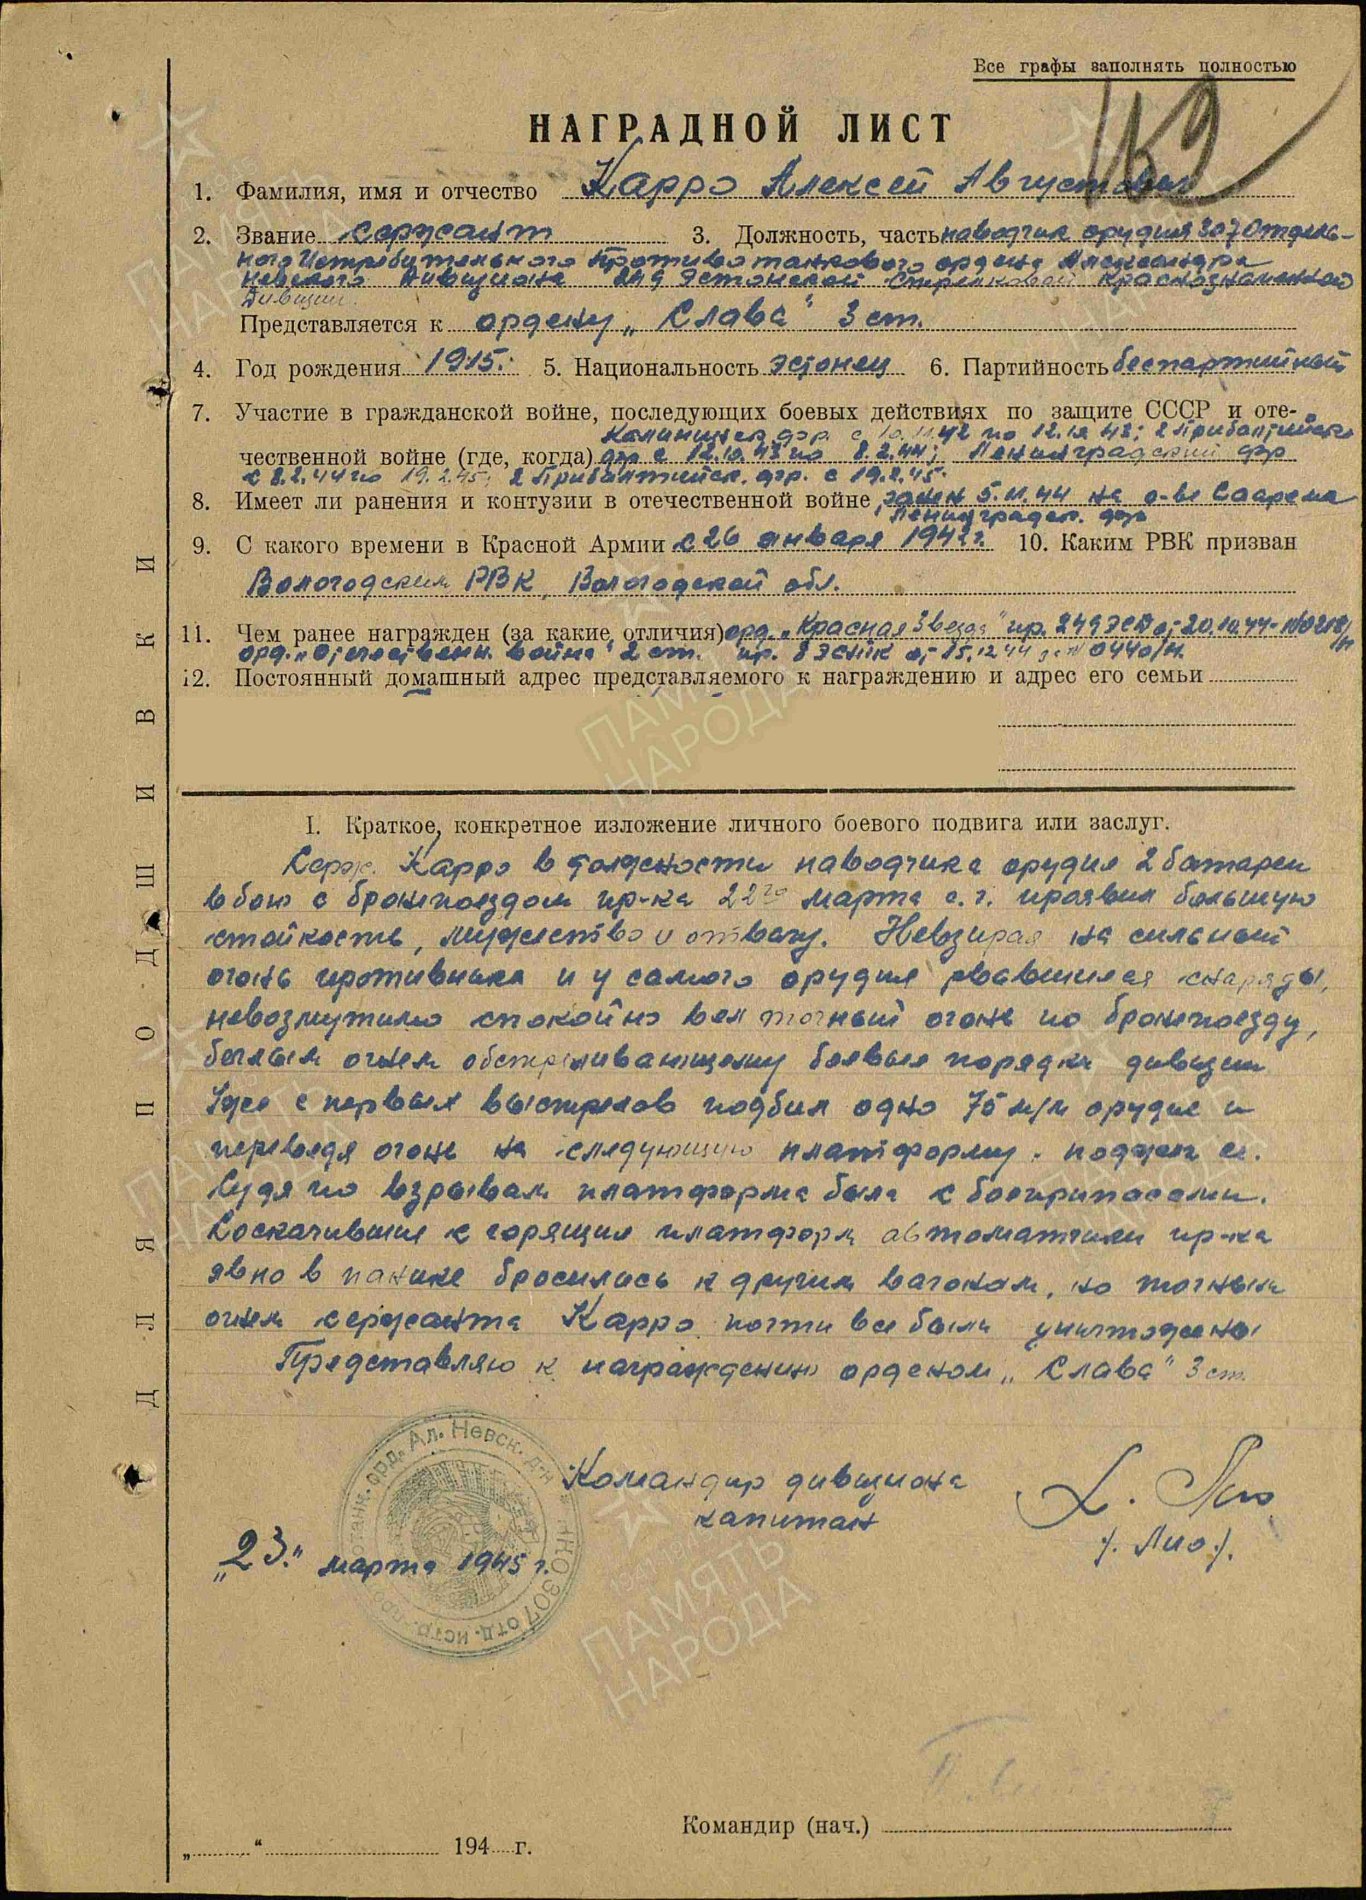 Все графы заполнять полностью
162
НАГРАДНОЙ ЛИСТ
1. Фамилия, имя и отчество Карро Алексей Августович
2. Звание сержант 3. Должность, часть наводчик орудия 307 Отдель-
ного Истребительного Противотанкового ордена Александра
Невского Дивизиона 249 Эстонской Стрелковой Краснознаменной
Дивизии.
Представляется к ордену „Слава" 3 ст.
4. Год рождения 1915. 5. Национальность эстонец 6. Партийность беспартийный
7. Участие в гражданской войне, последующих боевых действиях по защите СССР и оте-
Калининск фр. с 10.11.42 по 12.10.43; 2 Прибалтийск
чественной войне (где, когда) фр с 12.10.43 по 8.2.44; Ленинградский фр
с 8.2.44 по 19.2.45; 2 Прибалтийск. фр. с 19.2.45.
8. Имеет ли ранения и контузии в отечественной войне, ранен 5.11.44 на о-ве Саарема
Ленинградск. фр
9. С какого времени в Красной Армии с 26 января 1942 г. 10. Каким РВК призван
Вологодским РВК, Вологодской обл.
11. Чем ранее награжден (за какие отличия) орд. „Красная Звезда" пр. 249 ЭСД от 20.10.44 №0218/н
орд. „Отечествен. война" 2 ст. пр. 8 ЭСТК от 15.12.44 за № 044о/н.
12. Постоянный домашный адрес представляемого к награждению и адрес его семьи
I. Краткое, конкретное изложение личного боевого подвига или заслуг.
Серж. Карро в должности наводчика орудия 2 батареи
в бою с бронпоездом пр-ка 22го марта с.г. проявил большую
стойкость, мужество и отвагу. Невзирая на сильный
огонь противника и у самого орудия рвавшиеся снаряды,
невозмутимо спокойно вел точный огонь по бронпоезду,
беглым огнем обстреливающему боевые порядки дивизии
Уже с первых выстрелов подбил одно 75 м/м орудие и
переведя огонь на следующую платформу. поджег ее.
Судя по взрывам платформа была с боеприпасами.
Соскачившие с горящих платформ автоматчики пр-ка
явно в панике бросились к другим вагонам, но точным
огнем сержанта Карро почти все были уничтожены
Представляю к награждению орденом „Слава" 3 ст.
Командир дивизиона
капитан
/. Лио./.
„23." марта 1945 г.
НКО 307 отд. истр.-противотанк. орд. Ал. Невск. д-н
Командир (нач.)
„ " 194 г.
ДЛЯ ПОДШИВКИ
ПАМЯТЬ
НАРОДА